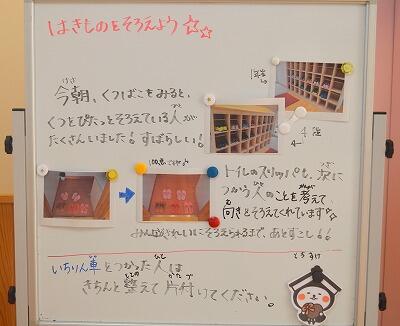 はきものをそろえよう☆☆
今朝、くつばこをみると、
くつとぴたっとそろえている人が
たくさんいました！すばらしい！
トイレのスリッパも、次に
つかう人のことを考えて、
向きをそろえてくれています☆
みんながきれいにそろえられるまで、あとすこし！！
いちりん車をつかった人は
きちんと整えて片付けてください。